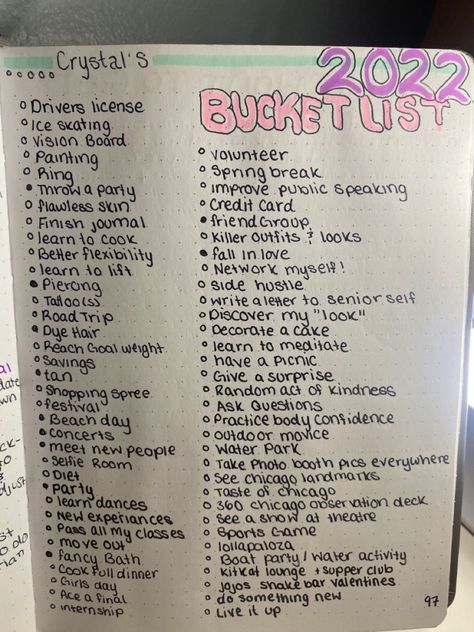 Crystal's
2022
BUCKET LIST
Drivers license
Ice skating
Vision Board
Painting
Ring
Throw a party
flawless skin
Finish journal
learn to cook
Better flexibility
learn to lift
Piercing
Tattoo(s)
Road Trip
Dye Hair
Reach Goal weight
Savings
tan
Shopping spree
festival
Beach day
concerts
meet new people
Selfie Room
Diet
Party
learn dances
New experiances
Pass all my classes
move out
fancy Bath
Cook full dinner
Girls day
Ace a final
internship
volunteer
Spring break
improve public speaking
Credit Card
friend Group
Killer outfits & looks
fall in love
Network myself!
side hustle
write a letter to senior self
Discover my "look"
Decorate a cake
learn to meditate
have a picnic
Give a surprise
Random act of kindness
Ask Questions
Practice body confidence
outdoor movice
Water Park
Take Photo booth pics everywhere
See chicago landmarks
Taste of chicago
360 chicago observation deck
See a show at theatre
Sports Game
lollapaloza
Boat party / water activity
Kitkat lounge + supper club
jojos shake bar valentines
do something new
Live it up
97